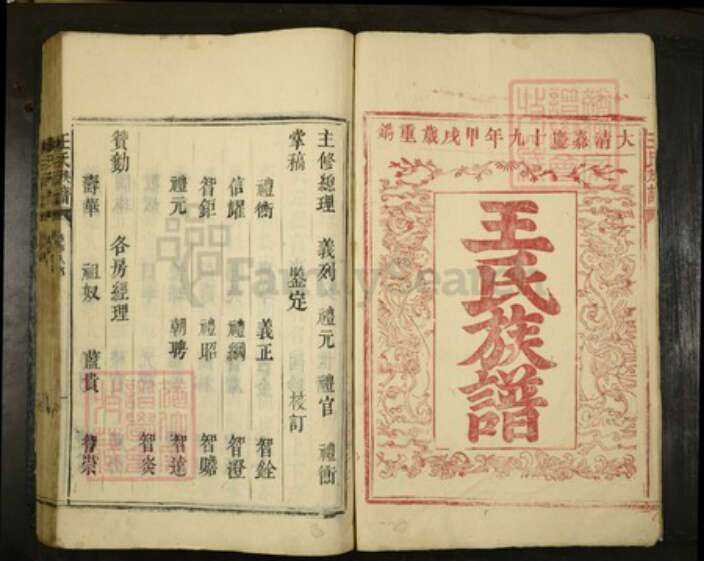 大清嘉慶十九年甲戌歲重鐫
王氏族譜
主修總理 義列 禮元 禮官 禮衡
掌稿 鑒定 校訂
禮衡 義正 智銓
信耀 禮綱 智澄
智鉅 禮昭 智瞻
禮元 朝聘 智達
智炎
贊勷 各房經理
壽華 祖奴 藍貴 智崇
王氏族譜
王氏族譜
FamilySearch